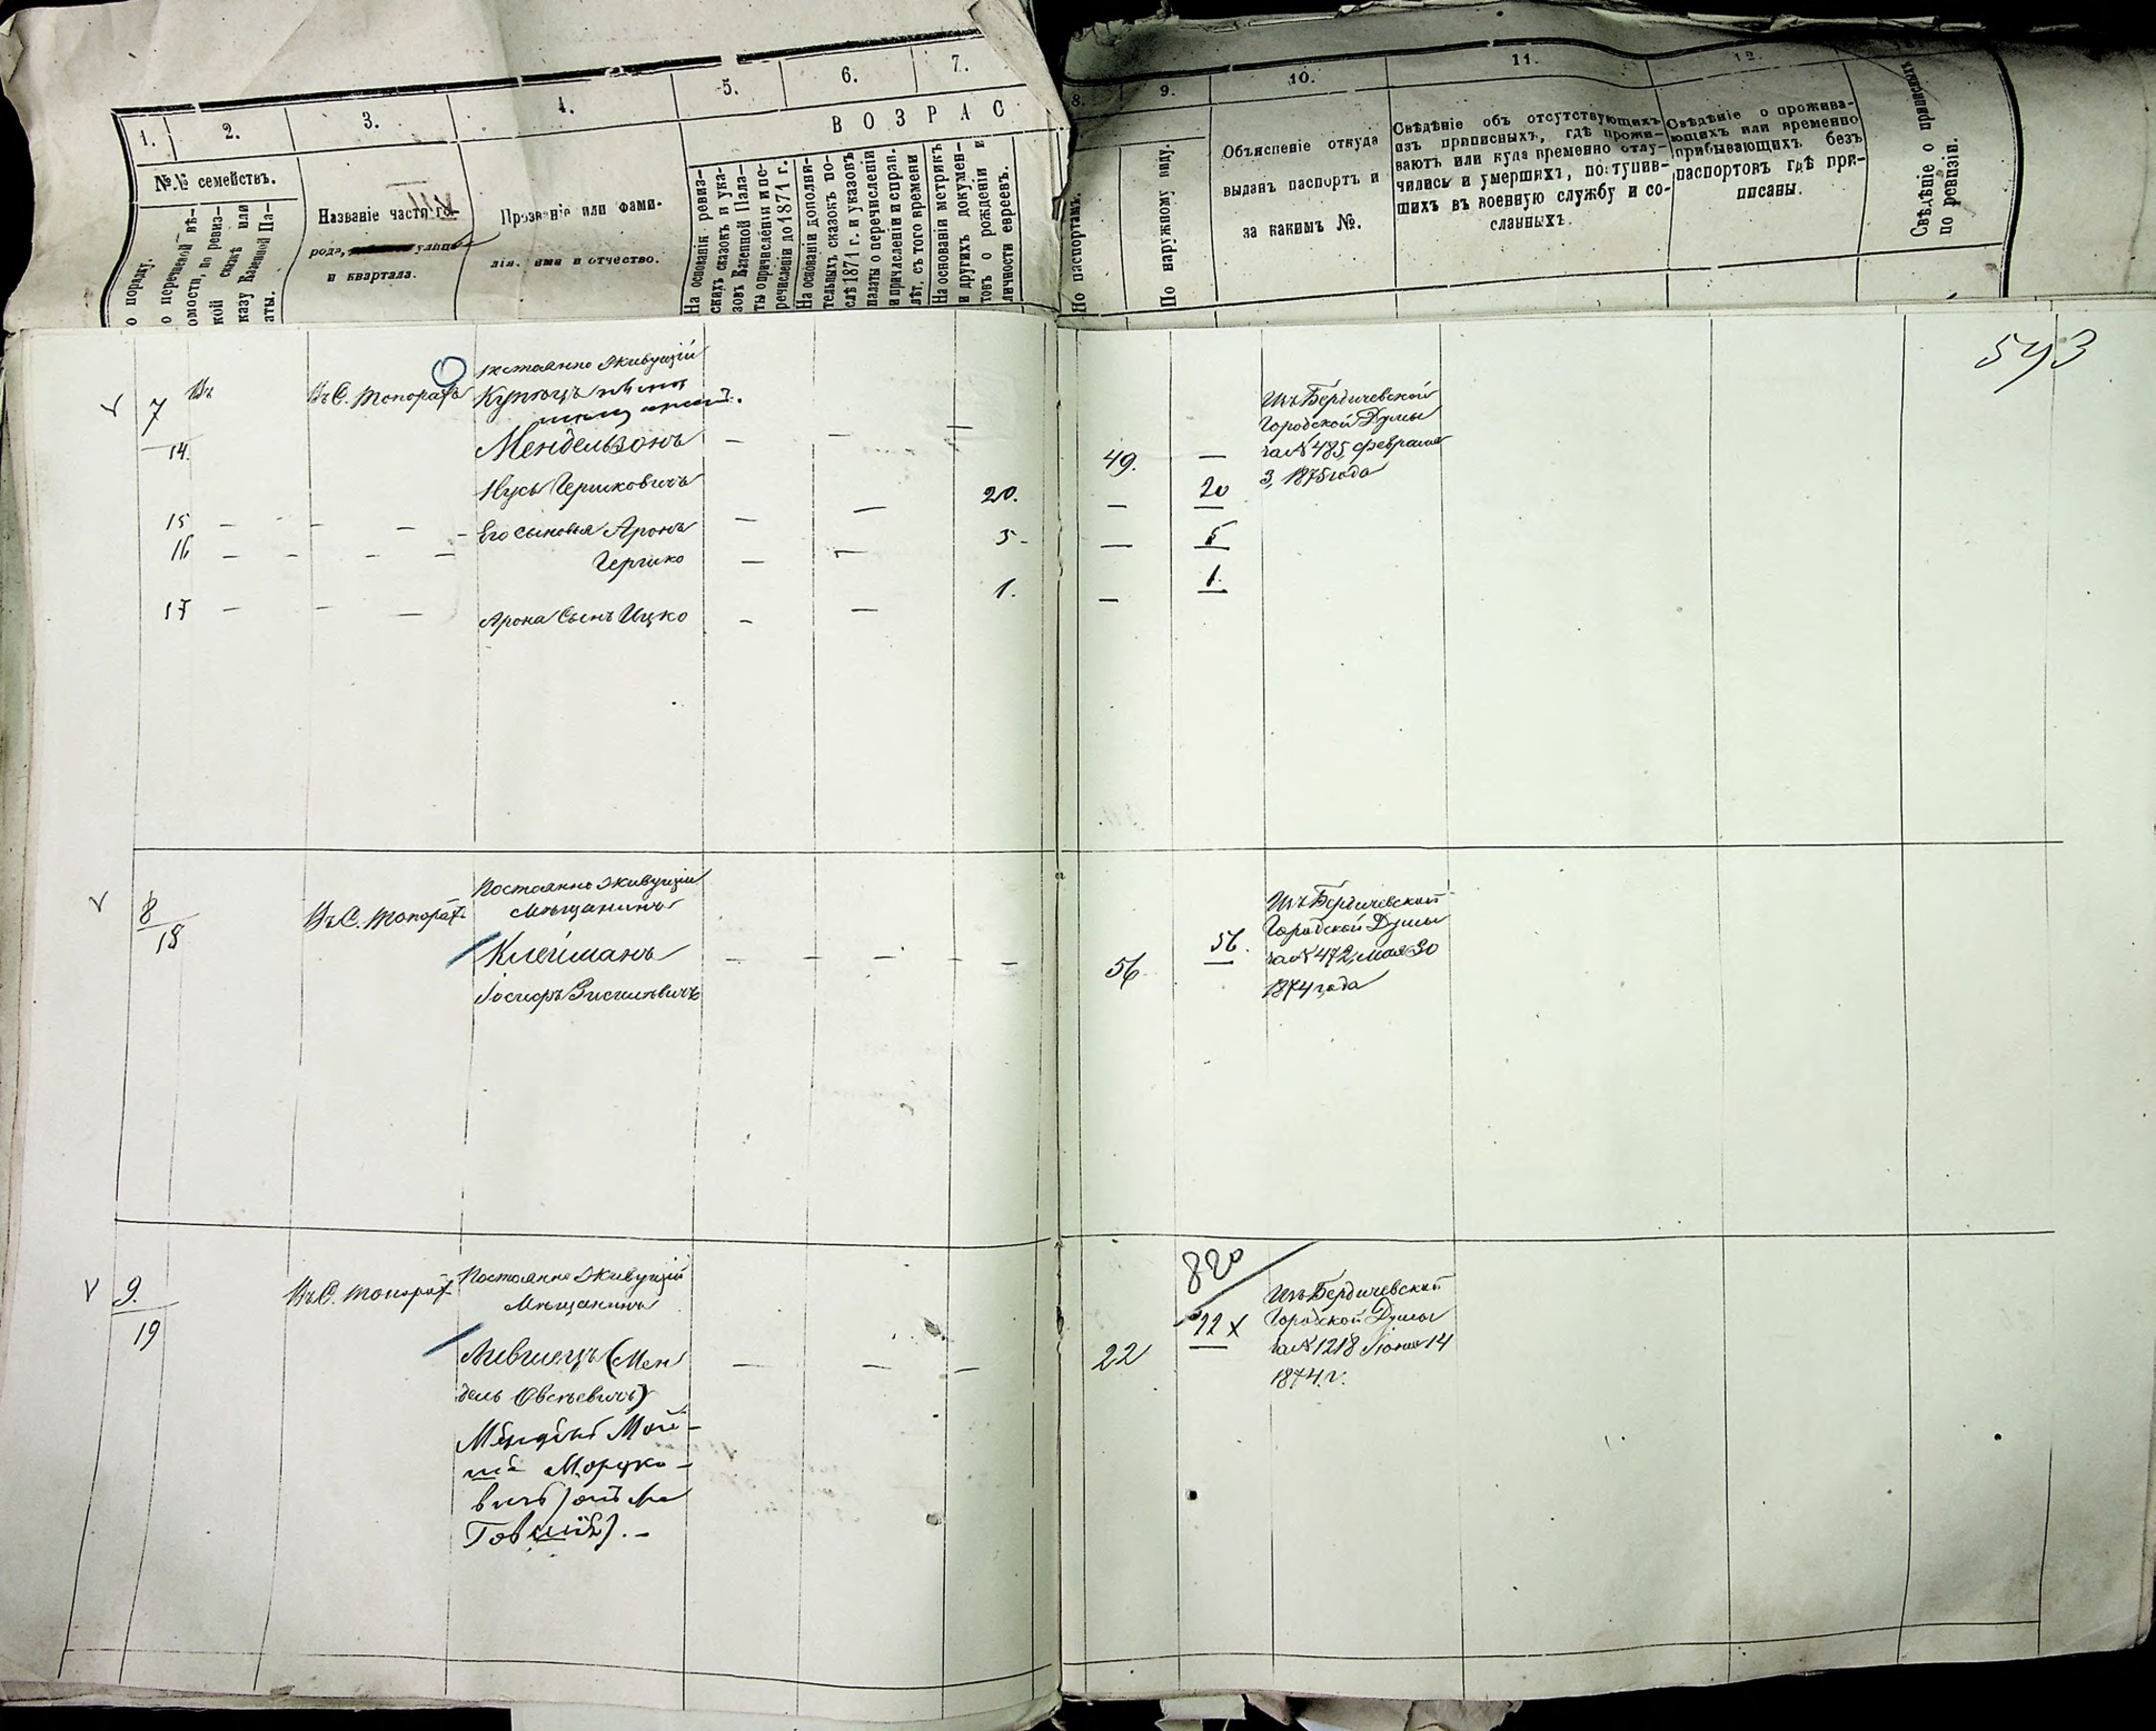 1.
2.
3.
4.
5.
6.
7.
ВОЗРАС
№№ семействъ.
о порядку.
о перечневой вѣ-
омости, по ревиз-
кой сказкѣ или
казу Казенной Па-
аты.
VIII
Названіе части го-
рода, улицы
и квартала.
Прозваніе или фами-
лія, имя и отчество.
На основаніи ревиз-
скихъ сказокъ и ука-
зовъ Казенной Пала-
ты о причисленіи и пе-
речисленіи до 1871 г.
На основаніи дополни-
тельныхъ сказокъ по-
слѣ 1871 г. и указовъ
палаты о перечисленіи
и причисленіи и справ.
лѣт. съ того времени
На основаніи метрикъ
и другихъ докумен-
товъ о рожденіи и
личности евреевъ.
8.
9.
10.
11.
12.
По паспортамъ.
По наружному виду.
Объясненіе откуда
выданъ паспортъ и
за какимъ №.
Свѣдѣніе объ отсутствующихъ
изъ приписныхъ, гдѣ прожи-
ваютъ или куда временно отлу-
чились и умершихъ, поступив-
шихъ въ военную службу и со-
сланныхъ.
Свѣдѣніе о прожива-
ющихъ или временно
прибывающихъ безъ
паспортовъ гдѣ при-
писаны.
Свѣдѣніе о приписныхъ
по ревизіи.
593
7
14.
Въ С. Топорахъ
Постоянно Живущій
Купецъ
Мендельзонъ — — — 49. —
Нусь Гершковичъ
Изъ Бердичевской
Городской Думы
за № 485, февраля
3, 1875 года
15 — — — Его сыновья Аронъ — — 20. — 20
16 — — — — Гершко — — 5 — — 5
17 — — — Арона Сынъ Ицко — — 1. — 1.
8
18
Въ С. Топорахъ
Постоянно Живущій
Мѣщанинъ
Клейманъ — — — — — 56 56.
Іосифъ Зисильевичъ
Изъ Бердичевской
Городской Думы
за № 472, мая 30
1874 года
9.
19
Въ С. Топорахъ
Постоянно Живущій
Мѣщанинъ
Лившецъ (Мен
дель Овсѣевичъ)
Мендель Мой-
Морцко-
820
22 22 X
Изъ Бердичевской
Городской Думы
за № 1218 Іюня 14
1874. г.